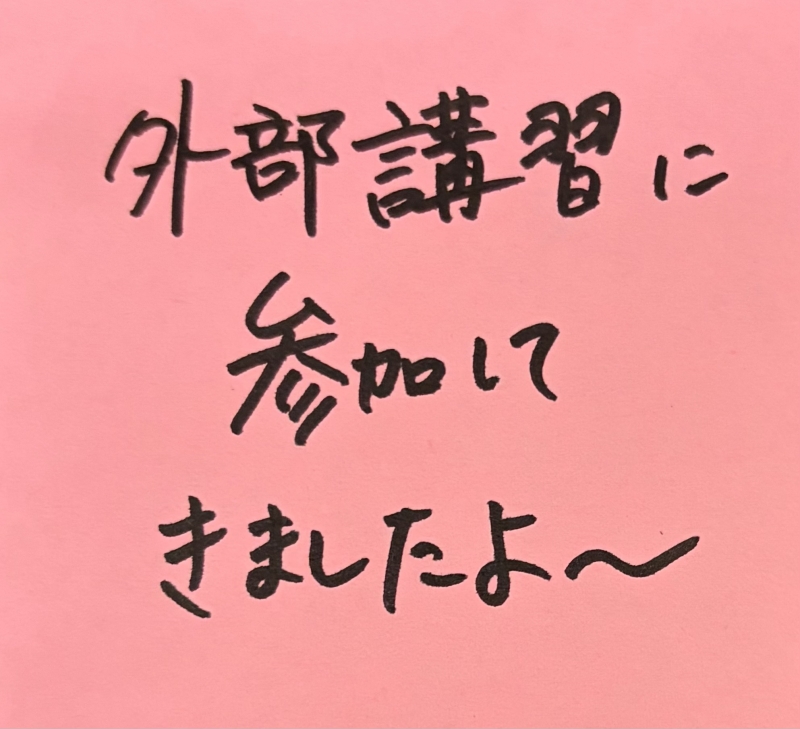 外部講習に
参加して
きましたよ〜